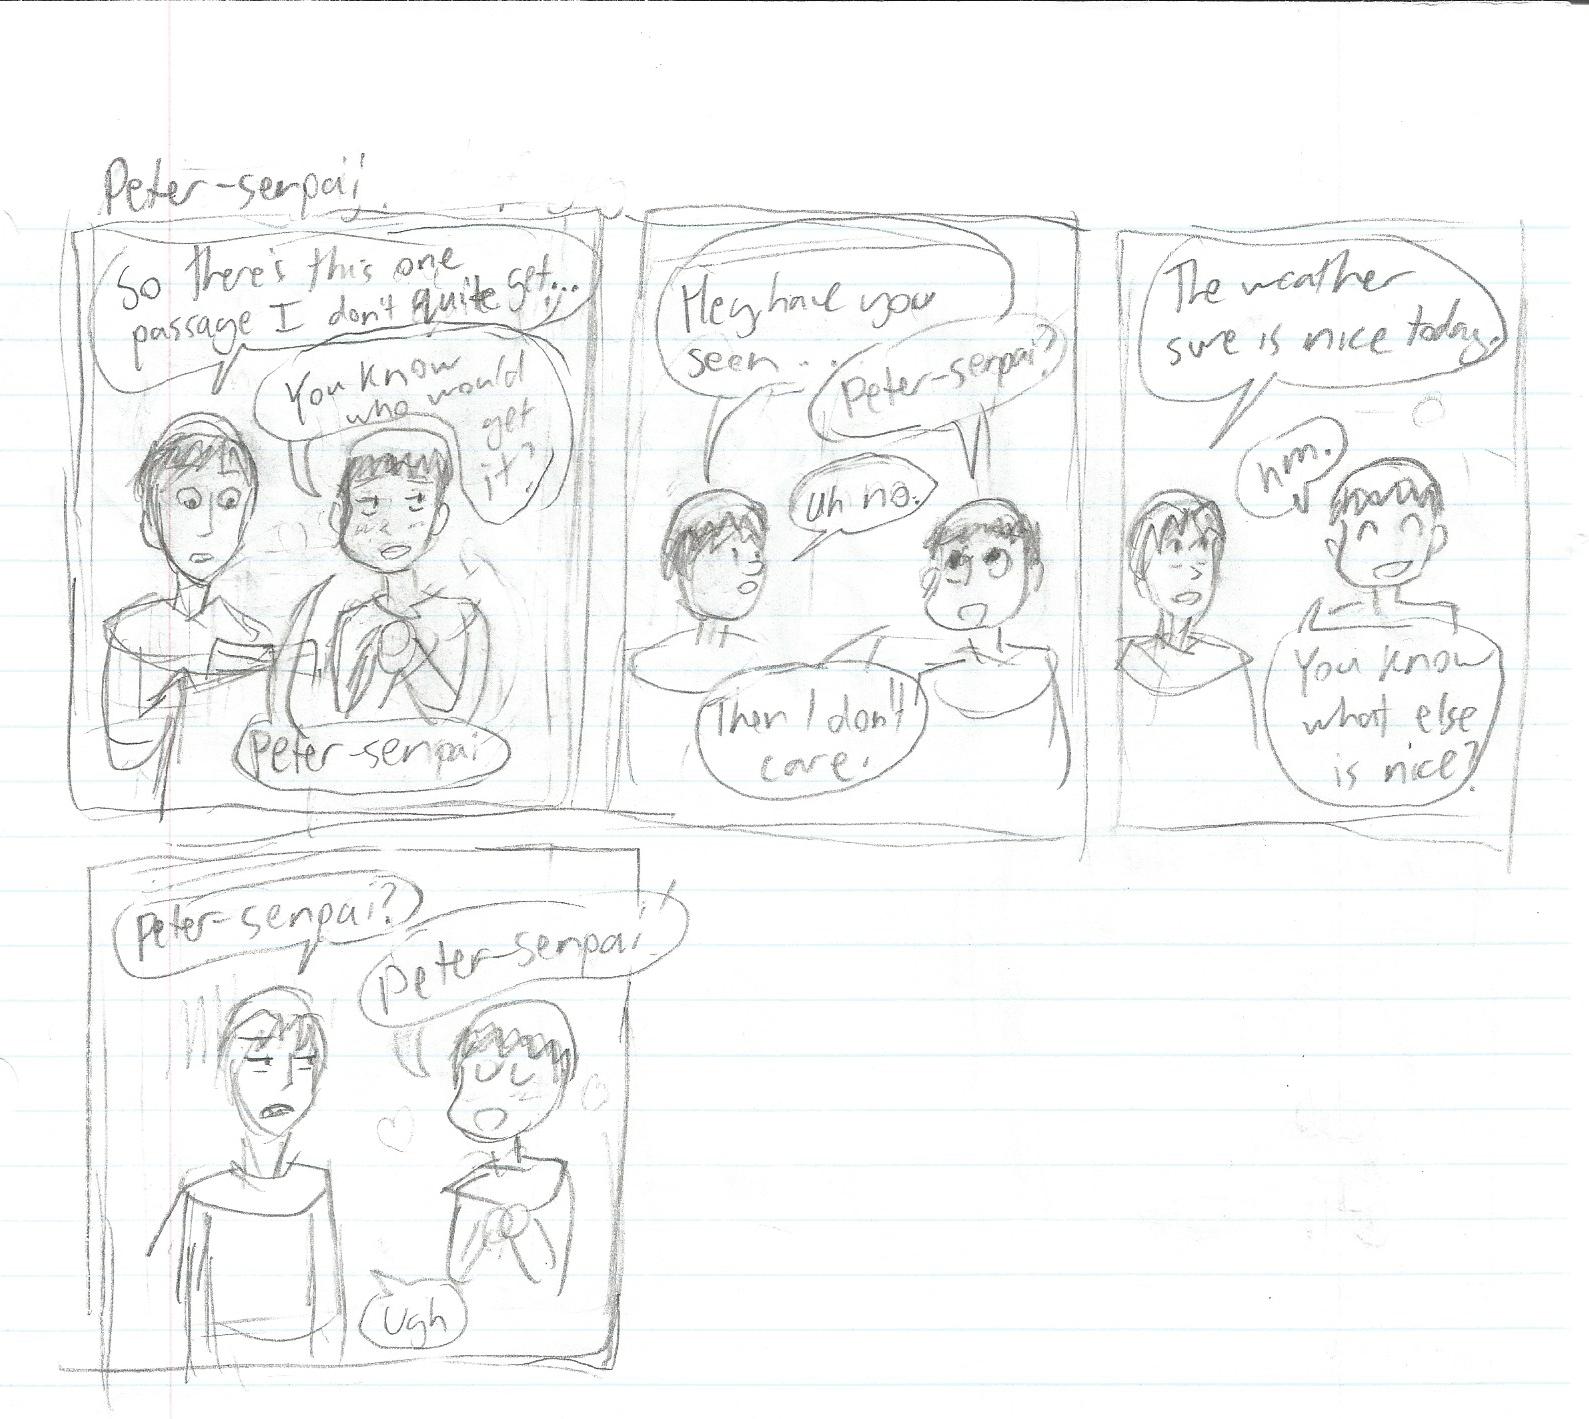 Peter-senpai
So there's this one
passage I don't quite get...
You know
who would
get
it?
Peter-senpai
Hey, have you
seen...
Peter-senpai?
uh no.
Then I don't
care.
The weather
sure is nice today.
hm.
You know
what else
is nice?
Peter-senpai?
Peter-senpai
Ugh